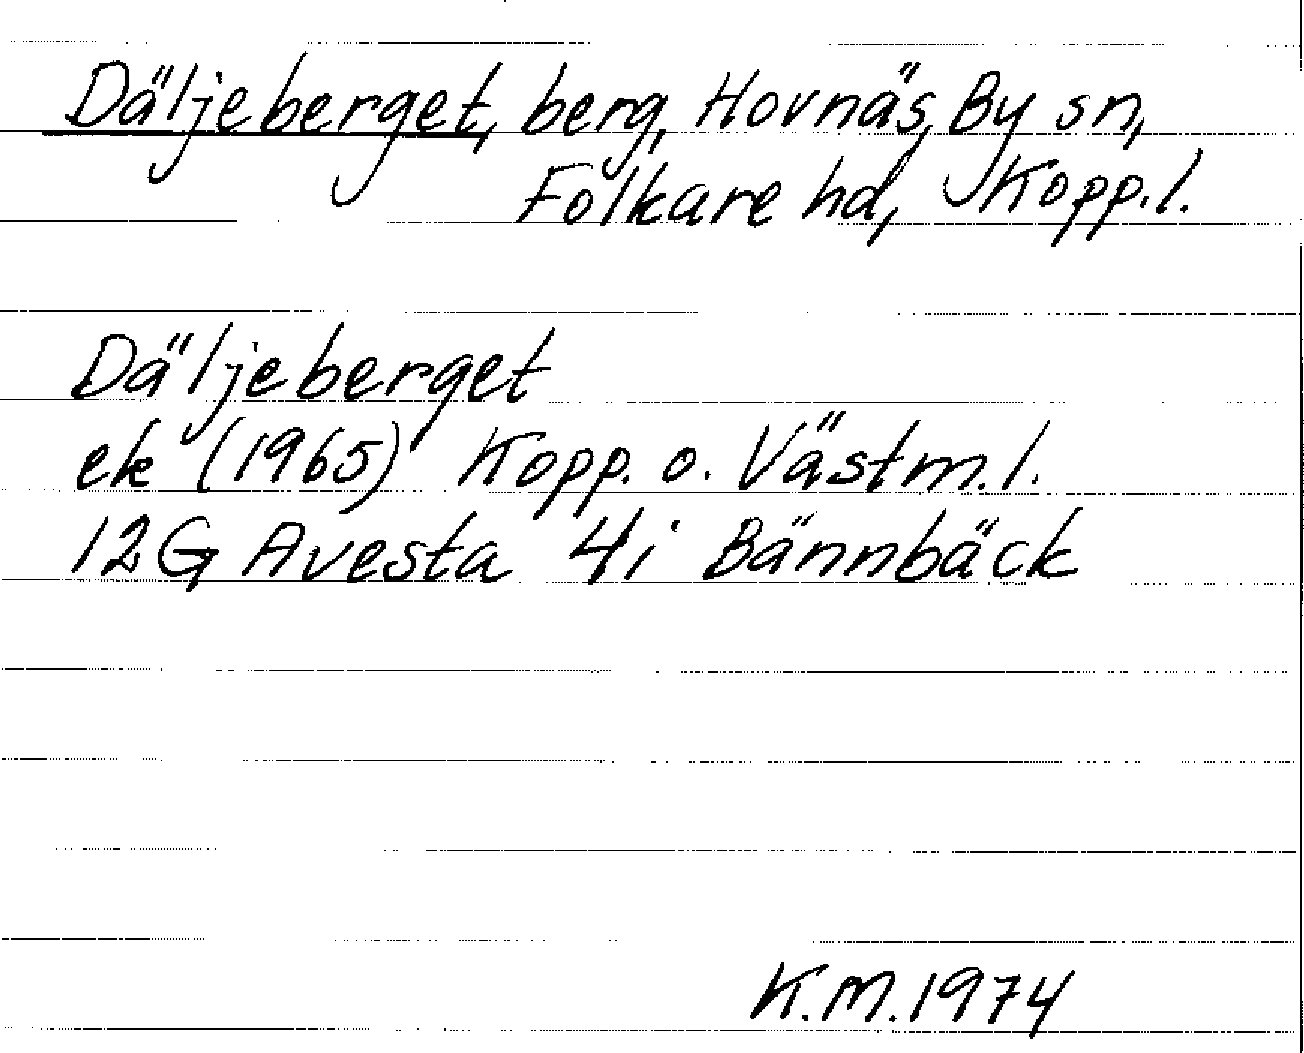 Däljeberget, berg, Hovnäs, By sn,
Folkare hd, Kopp. l.
Däljeberget
ek (1965) Kopp. o. Västm. l.
12G Avesta 4i Bännbäck
K.M. 1974